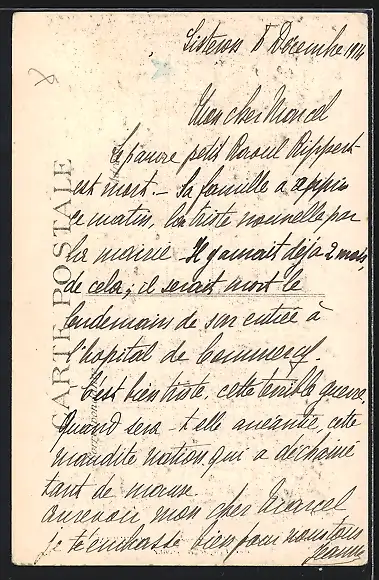 Sisteron 8 Décembre 1914
Mon cher Marcel
Le pauvre petit Raoul Rippert
est mort - Sa famille a appris
ce matin, la triste nouvelle par
la mairie - Il y aurait déjà 2 mois,
de cela, il serait mort le
lendemain de son entrée à
l'hopital de Commercy.
- C'est bien triste, cette terrible guerre.
Quand sera-t-elle anéantie, cette
maudite nation qui a déchainé
tant de maux.
Au revoir mon cher Marcel
je t'embrasse bien pour nous tous
Jeanne
CARTE POSTALE